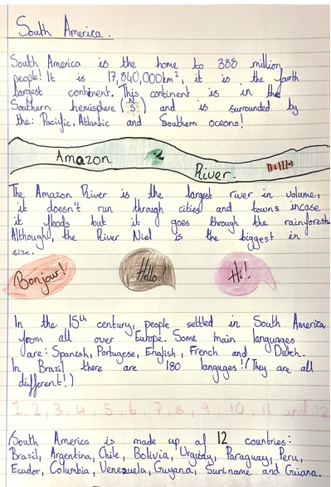 South America.
South America is the home to 388 million
people! It is 17,840,000km², it is the forth
largest continent. This continent is in the
Southern hemisphere (S) and is surrounded by
the: Pacific, Atlantic and Southern oceans!
Amazon River.
The Amazon River is the largest river in volume,
it doesn't run through cities and towns incase
it floods but it goes through the rainforests.
Although, the River Niel is the biggest in
size.
Bonjour! Hello! Hi!
In the 15th century, people settled in South America
from all over Europe. Some main languages
are: Spanish, Portugese, English, French and Dutch.
In Brazil there are 180 languges! (They are all
different!)
1, 2, 3, 4, 5, 6, 7, 8, 9, 10, 11 and 12
South America is made up of 12 countries:
Brazil, Argentina, Chile, Bolivia, Urguay, Paraguay, Peru,
Ecuder, Columbia, Venezuela, Guyand, Suriname and Guiana.